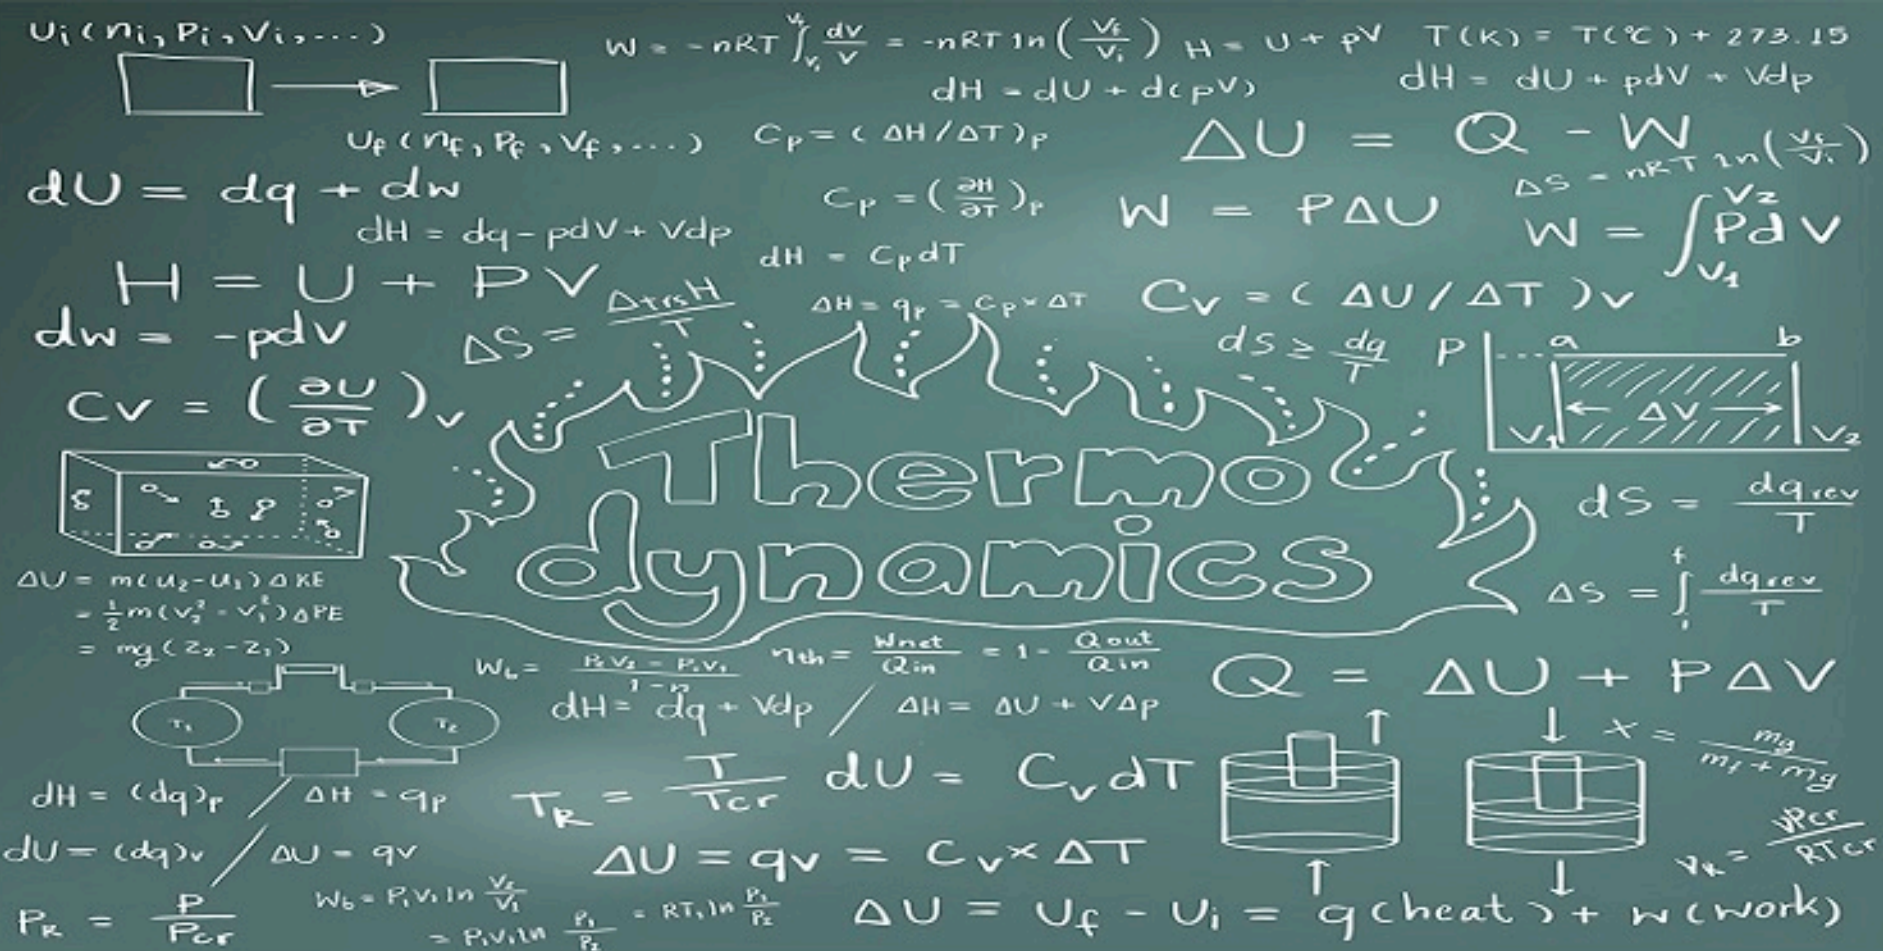 Ui(ni, Pi, Vi, ...)
W = -nRT ∫Vi^Vf dV/V = -nRT ln(Vf/Vi)
H = U + pV
T(K) = T(℃) + 273.15
dH = dU + d(pV)
dH = dU + pdV + Vdp
Uf(nf, Pf, Vf, ...)
Cp = (ΔH/ΔT)p
ΔU = Q - W
ΔS = nRT ln(Vf/Vi)
dU = dq + dw
Cp = (∂H/∂T)p
W = PΔU
W = ∫V1^V2 PdV
dH = dq - pdV + Vdp
dH = CpdT
H = U + PV
ΔS = ΔtrsH/T
ΔH = qp = Cp×ΔT
Cv = (ΔU/ΔT)v
dw = -pdV
dS ≥ dq/T
P a b
ΔV
V1 V2
Cv = (∂U/∂T)v
Thermo
dynamics
dS = dqrev/T
ΔS = ∫i^f dqrev/T
ΔU = m(u2-u1)ΔKE
= 1/2m(V2²-V1²)ΔPE
= mg(Z2-Z1)
Wb = P2V2-P1V1/1-n
ηth = Wnet/Qin = 1 - Qout/Qin
Q = ΔU + PΔV
T1 T2
dH = dq + Vdp / ΔH = ΔU + VΔp
x = mg/mf+mg
dH = (dq)p / ΔH = qp
TR = T/Tcr
dU = CvdT
dU = (dq)v / ΔU = qv
ΔU = qv = Cv×ΔT
VR = VPcr/RTcr
PR = P/Pcr
Wb = P1V1ln V2/V1
= P1V1ln P1/P2 = RT1ln P1/P2
ΔU = Uf - Ui = q(heat) + w(work)